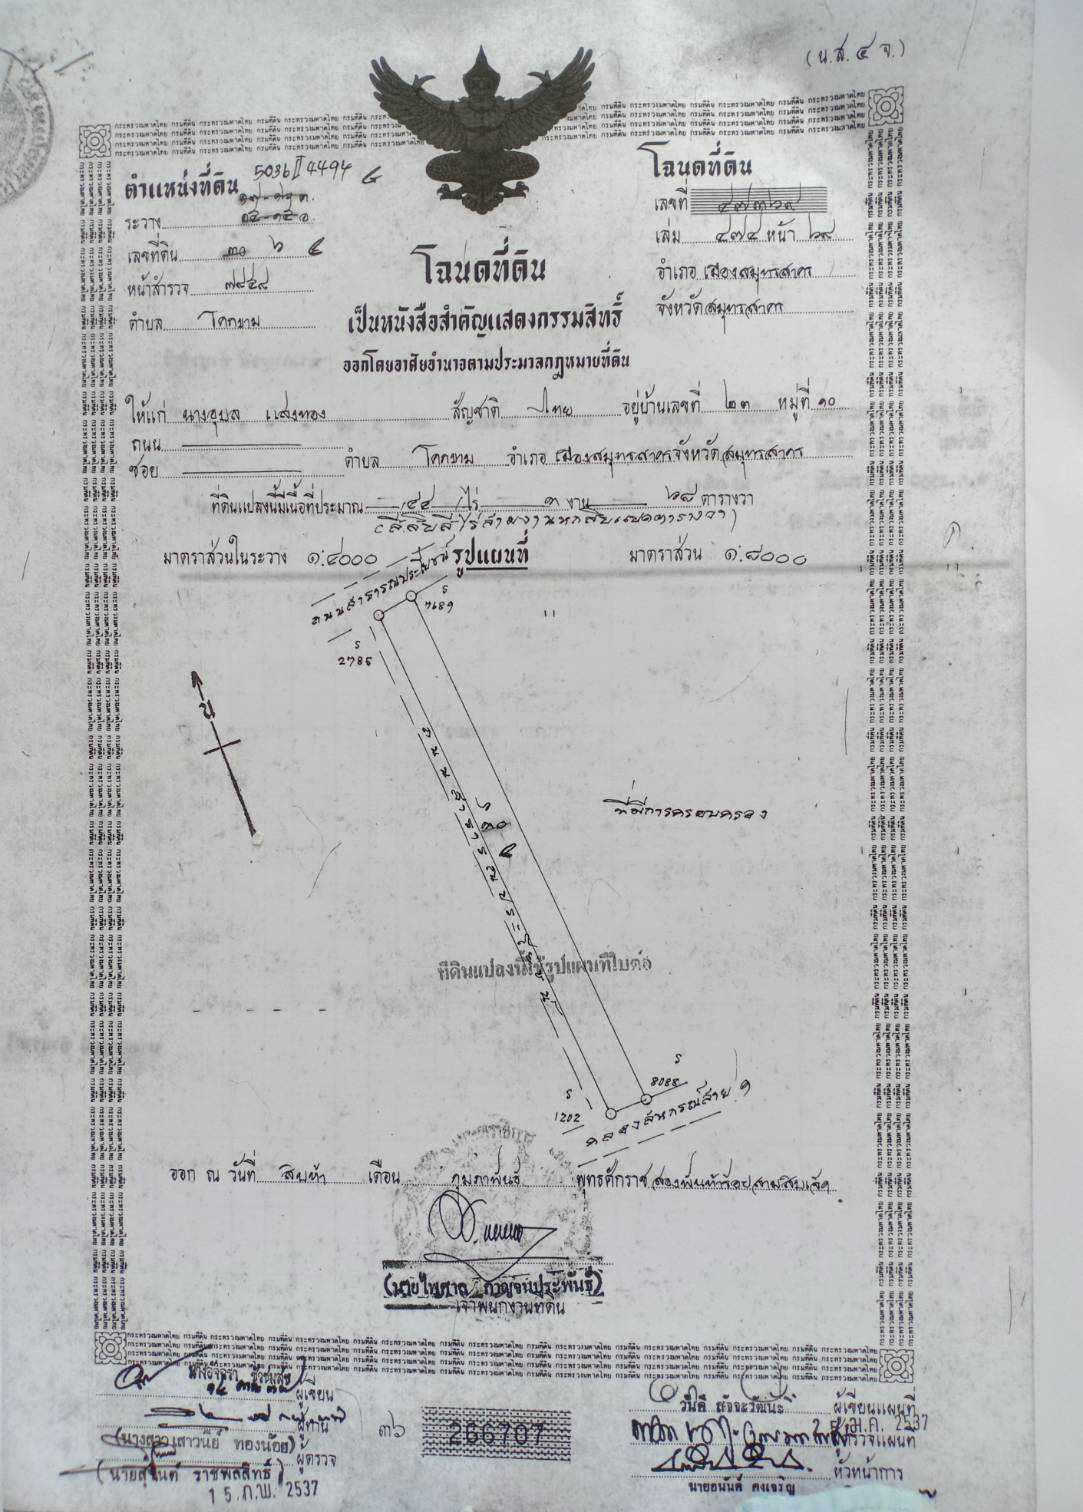 (น.ส. ๔ จ.)
ตำแหน่งที่ดิน 5036 II 4494
ระวาง
เลขที่ดิน ๓๐ ๖
หน้าสำรวจ ๗๙๔๘
ตำบล โคกขาม
โฉนดที่ดิน
เลขที่ ๔๗๓๖๙
เล่ม ๔๗๔ หน้า ๖๙
อำเภอ เมืองสมุทรสาคร
จังหวัด สมุทรสาคร
โฉนดที่ดิน
เป็นหนังสือสำคัญแสดงกรรมสิทธิ์
ออกโดยอาศัยอำนาจตามประมวลกฎหมายที่ดิน
ให้แก่ นางอุบล แสงทอง สัญชาติ ไทย อยู่บ้านเลขที่ ๒๓ หมู่ที่ ๑๐
ถนน
ซอย ตำบล โคกขาม อำเภอ เมืองสมุทรสาคร จังหวัด สมุทรสาคร
ที่ดินแปลงนี้มีเนื้อที่ประมาณ ๔๔ ไร่ ๓ งาน ๖๘ ตารางวา
(สี่สิบสี่ไร่สามงานหกสิบแปดตารางวา)
มาตราส่วนในระวาง ๑:๔๐๐๐ รูปแผนที่ มาตราส่วน ๑:๘๐๐๐
ถนนสาธารณประโยชน์
ส 7689
ส 2786
น
๖
๓๐
ที่มีการครอบครอง
ที่ดินแปลงนี้ใช้รูปแผนที่ใบต่อ
ส 8088
ส 1202
คลองสหกรณ์สาย ๑
ออก ณ วันที่ สิบห้า เดือน กุมภาพันธ์ พุทธศักราช สองพันห้าร้อยสามสิบเจ็ด
(นายไพศาล กาญจนประพันธ์)
เจ้าพนักงานที่ดิน
ผู้เขียน
ผู้ทาน
(นางสาวเสาวนีย์ ทองน้อย)
ผู้ตรวจ
(นายสุนันต์ ราชพลสิทธิ์)
15 ก.พ. 2537
๓๖
266707
วันดี สัจจะวัฒนะ ผู้เขียนแผนที่
2537
ผู้ตรวจแผนที่
หัวหน้าการ
นายอนันต์ คงเจริญ